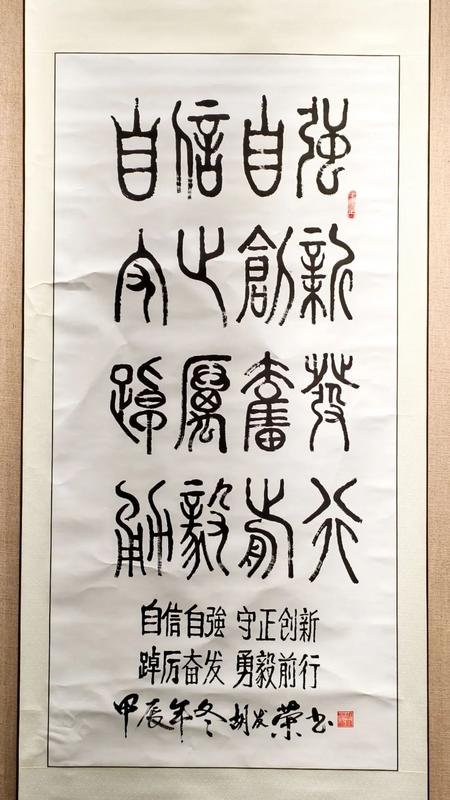 自信自強
守正創新
踔厲奮發
勇毅前行
自信自強 守正创新
踔厉奋发 勇毅前行
甲辰年冬胡发荣书